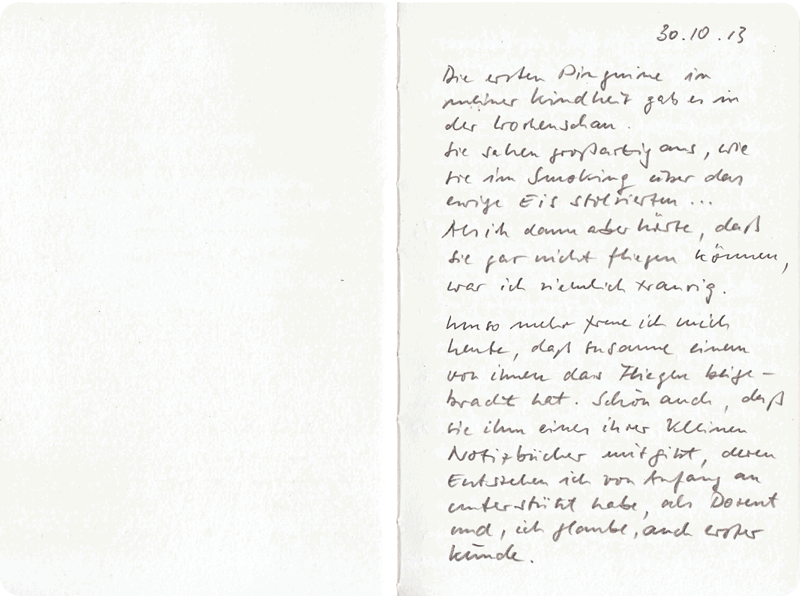 30.10.13
Die ersten Pinguine in
meiner Kindheit gab es in
der Wochenschau.
Sie sahen großartig aus, wie
sie im Smoking über das
ewige Eis stolzierten ...
Als ich dann aber hörte, daß
sie gar nicht fliegen können,
war ich ziemlich traurig.
Umso mehr freue ich mich
heute, daß Susanne einem
von ihnen das Fliegen beige-
bracht hat. Schön auch, daß
sie ihm eines ihrer kleinen
Notizbücher mitgibt, deren
Entstehen ich von Anfang an
unterstützt habe, als Dozent
und, ich glaube, auch erster
Kunde.